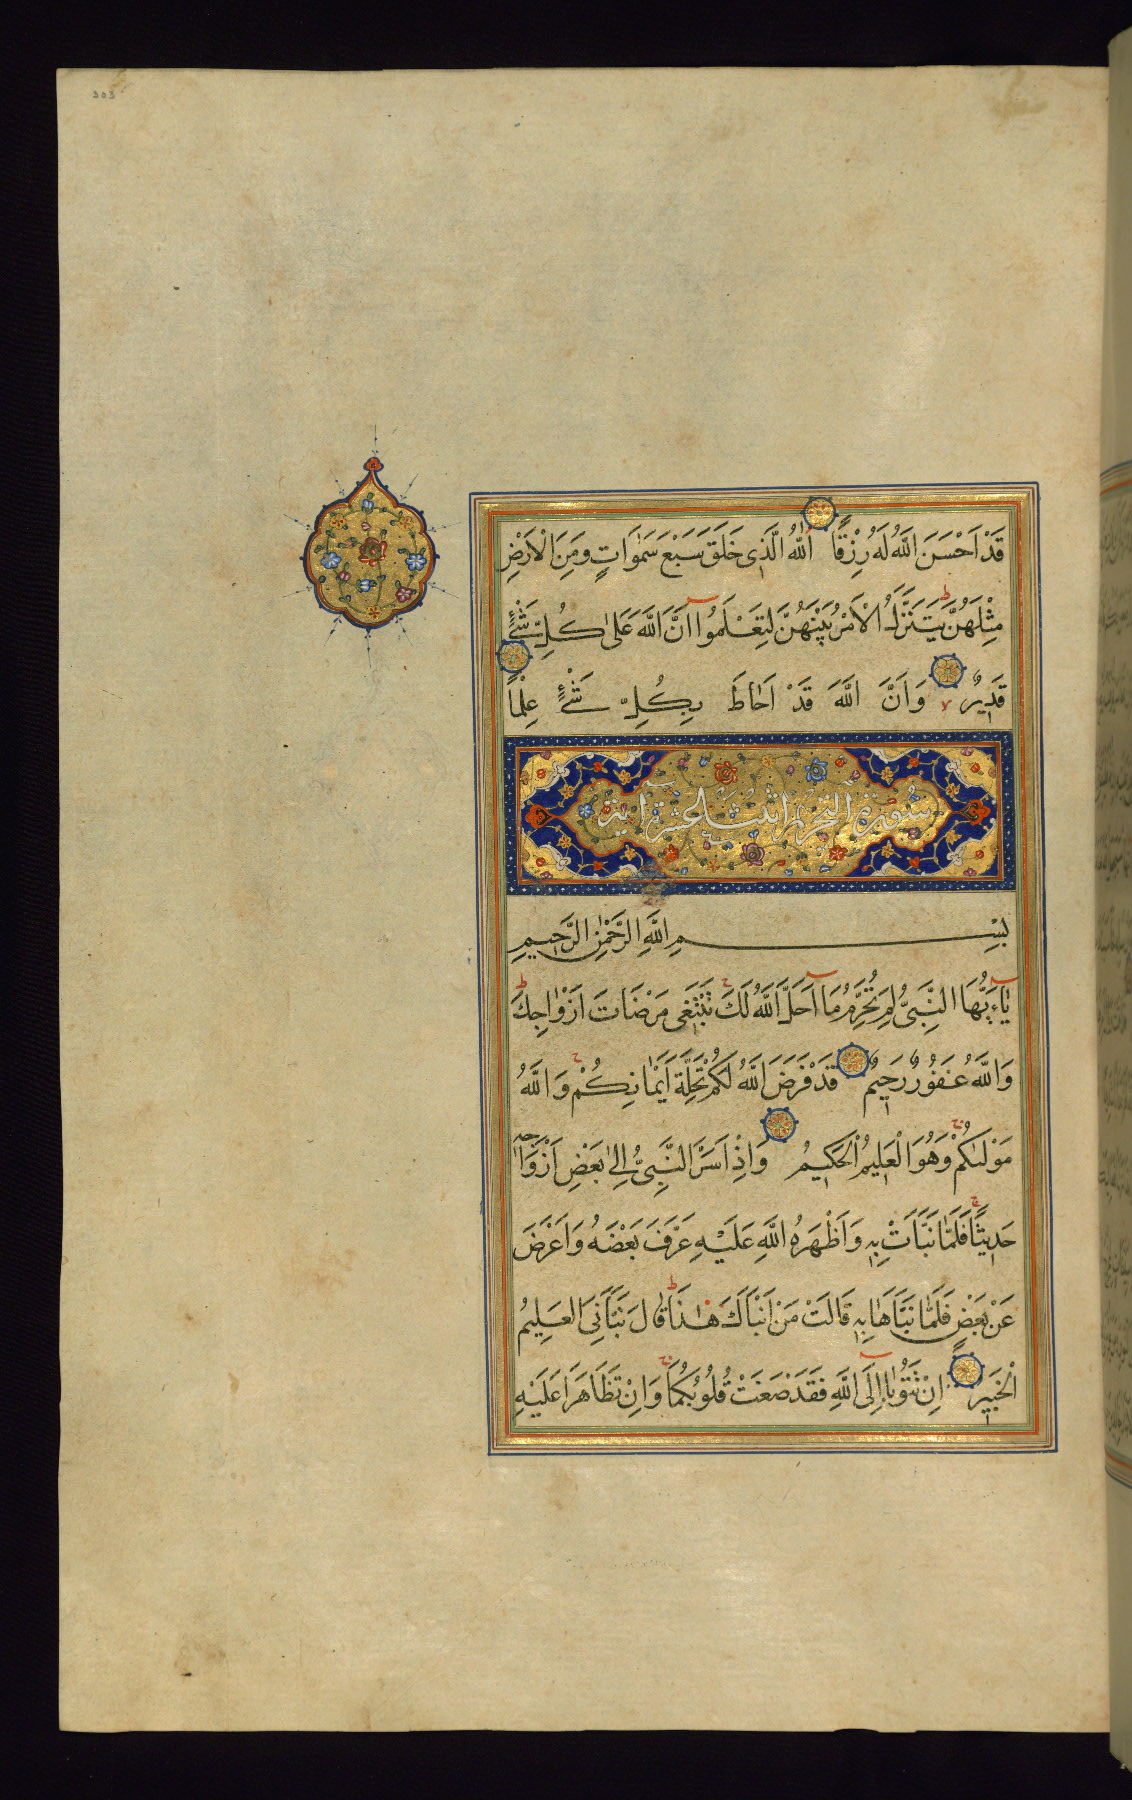 303
قَدْ اَحْسَنَ اللّٰهُ لَهُ رِزْقًا اَللّٰهُ الَّذِى خَلَقَ سَبْعَ سَمٰوَاتٍ وَمِنَ الْاَرْضِ
مِثْلَهُنَّ يَتَنَزَّلُ الْاَمْرُ بَيْنَهُنَّ لِتَعْلَمُوا اَنَّ اللّٰهَ عَلٰى كُلِّ شَىْءٍ
قَدِيرٌ وَاَنَّ اللّٰهَ قَدْ اَحَاطَ بِكُلِّ شَىْءٍ عِلْمًا
سورة التحريم اثنتا عشرة آية
بِسْمِ اللّٰهِ الرَّحْمٰنِ الرَّحِيمِ
يَاءَيُّهَا النَّبِىُّ لِمَ تُحَرِّمُ مَا اَحَلَّ اللّٰهُ لَكَ تَبْتَغِى مَرْضَاتَ اَزْوَاجِكَ
وَاللّٰهُ غَفُورٌ رَحِيمٌ قَدْ فَرَضَ اللّٰهُ لَكُمْ تَحِلَّةَ اَيْمَانِكُمْ وَاللّٰهُ
مَوْلٰىكُمْ وَهُوَ الْعَلِيمُ الْحَكِيمُ وَاِذْ اَسَرَّ النَّبِىُّ اِلٰى بَعْضِ اَزْوَاجِهِ
حَدِيثًا فَلَمَّا نَبَّاَتْ بِهِ وَاَظْهَرَهُ اللّٰهُ عَلَيْهِ عَرَّفَ بَعْضَهُ وَاَعْرَضَ
عَنْ بَعْضٍ فَلَمَّا نَبَّاَهَا بِهِ قَالَتْ مَنْ اَنْبَاَكَ هٰذَا قَالَ نَبَّاَنِىَ الْعَلِيمُ
الْخَبِيرُ اِنْ تَتُوبَا اِلَى اللّٰهِ فَقَدْ صَغَتْ قُلُوبُكُمَا وَاِنْ تَظَاهَرَا عَلَيْهِ